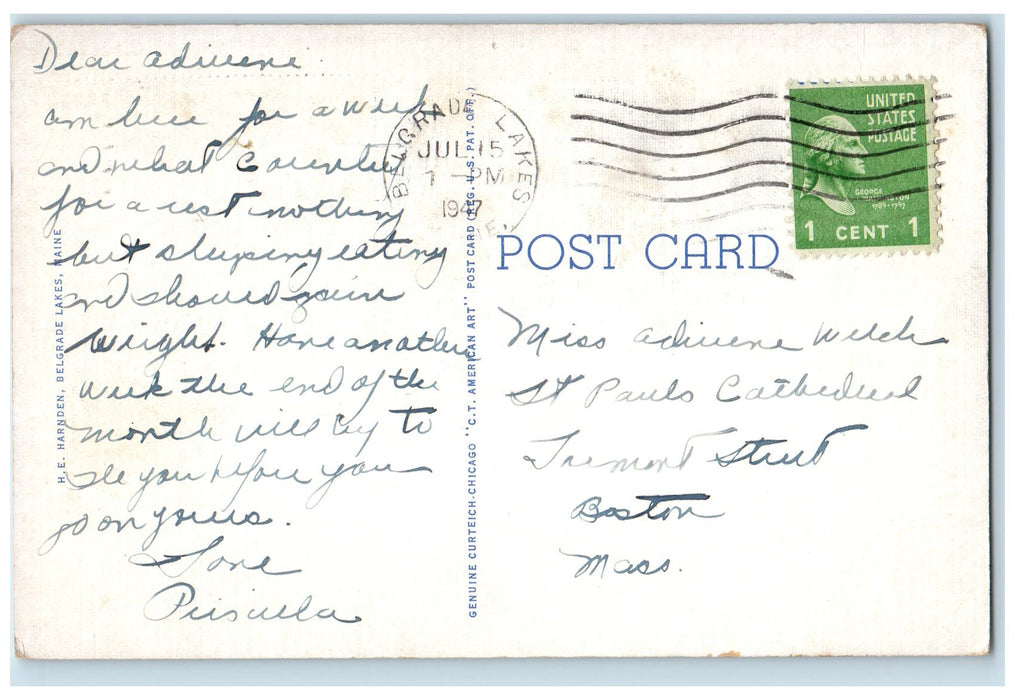 Dear Adriene
am here for a week
and what a country
for a rest nothing
but sleeping eating
and should gain
weight. Have another
week the end of the
month will try to
see you before you
go on yours.
Love
Priscilla
H.E. HARNDEN, BELGRADE LAKES, MAINE
GENUINE CURTEICH-CHICAGO "C.T. AMERICAN ART" POST CARD (REG. U.S. PAT. OFF.)
BELGRADE LAKES
JUL 15
7 - PM
1947
UNITED
STATES
POSTAGE
GEORGE
WASHINGTON
1789-1797
1 CENT 1
POST CARD
Miss Adriene Welch
St Pauls Cathedral
Tremont Street
Boston
Mass.